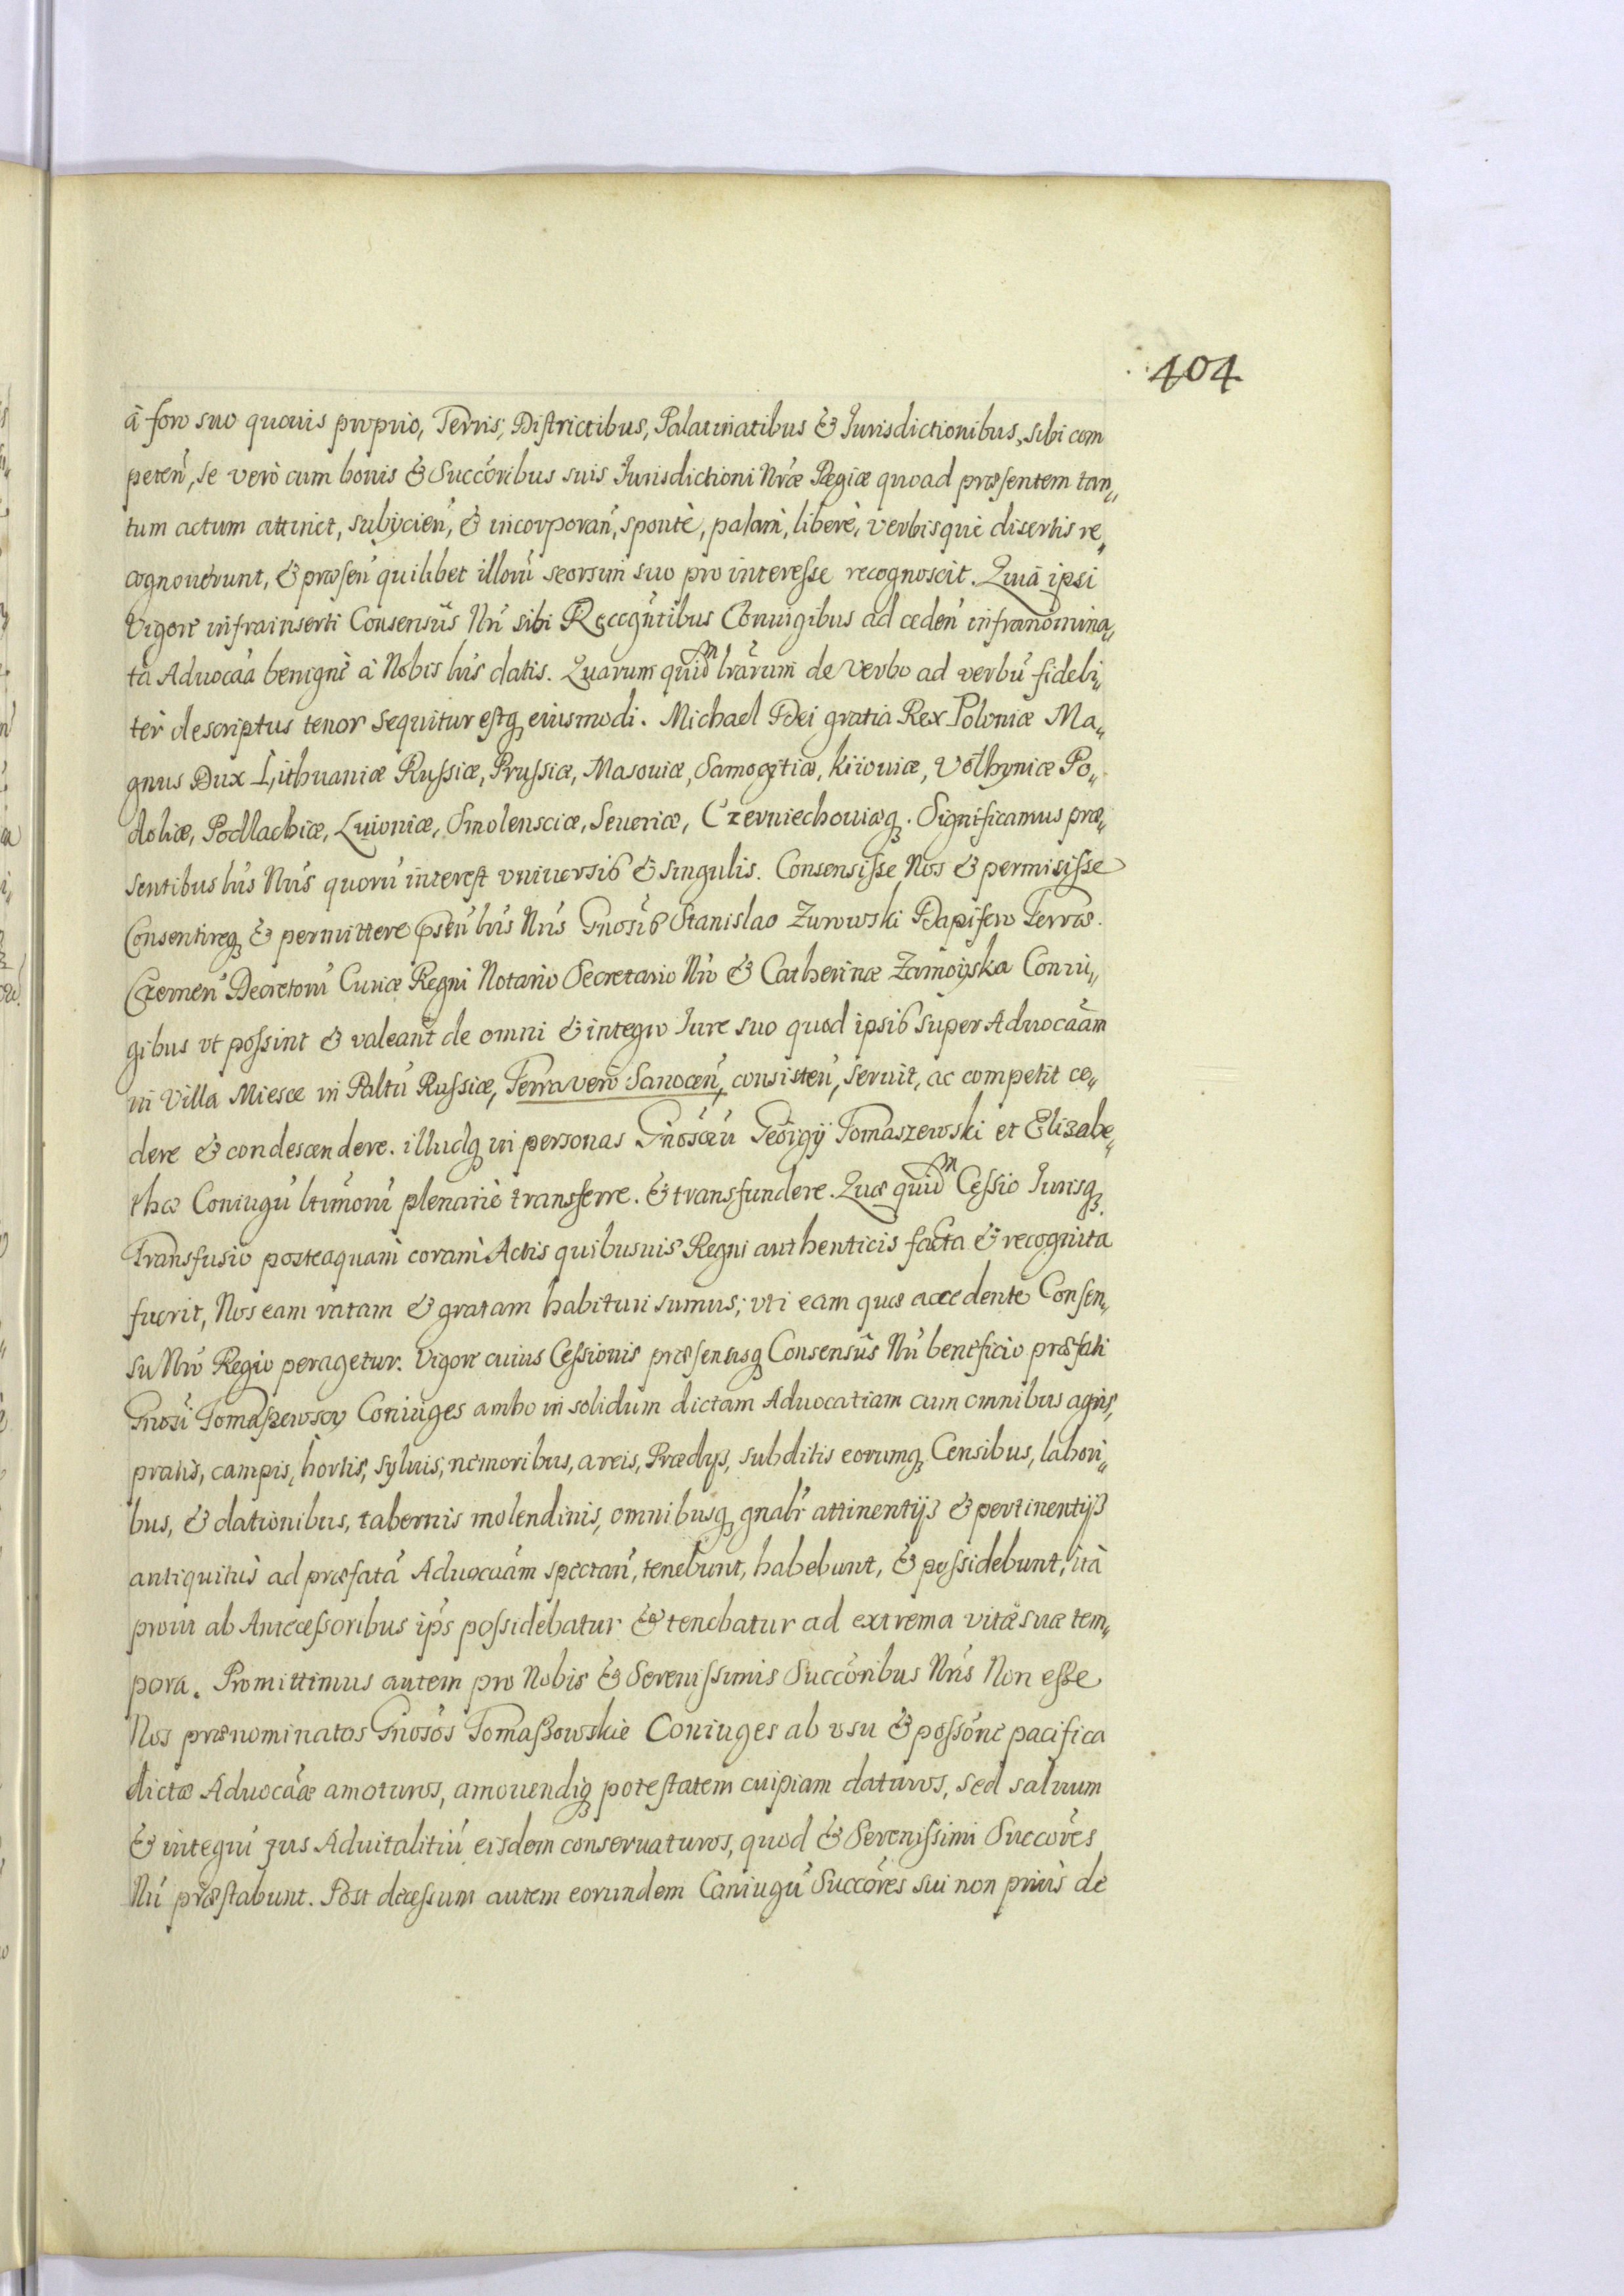 404
à foro suo quouis proprio, Terris, Districtibus, Palatinatibus & Jurisdictionibus, sibi com
peteñ, se verò cum bonis & Succoribus suis Jurisdictioni Nræ Regiæ quoad præsentem tan„
tum actum attinet, subijcieñ, & incorporañ, spontè, palam, liberè, verbisque disertis re„
cognouerunt, & præseñ quilibet illorũ seorsim suo pro interesse recognoscit. Quia ipsi
Vigore infrainserti Consensûs Nri sibi Recogñtibus Coniugibus ad cedeñ infranomina„
ta Aduocãa benignè à Nobis lris datis. Quarum quidm lrarum de verbo ad verbũ fideli„
ter descriptus tenor sequitur estq eiusmodi. Michael Dei gratia Rex Poloniæ Ma„
gnus Dux Lithuaniæ Russiæ, Prussiæ, Masouiæ, Samogitiæ, Kiiouiæ, Volhyniæ Po„
doliæ, Podlachiæ, Liuoniæ, Smolensciæ, Seueriæ, Czerniechouiæq. Significamus præ„
sentibus lris Nris quorũ interest vniuersis & singulis. Consensisse Nos & permisisse
Consentireq & permittere pñtibus lris Nris Gnosis Stanislao Zurowski Dapifero Terræ.
Czerneñ Decretorũ Curiæ Regni Notario Secretario Nro & Catherinæ Zamoyska Coniu„
gibus vt possint & valeant de omni & integro Jure suo quod ipsis super Aduocãam
in Villa Miesce in Paltũ Russiæ, Terra verò Sanoceñ, consisteñ, seruit, ac competit ce„
dere & condescendere. illudq in personas Gnosorũ Georgij Tomaszewski et Elizabe„
thæ Coniugũ ltimorũ plenariè transferre. & transfundere. Quæ quidm Cessio Jurisq.
Transfusio posteaquam coram Actis quibusuis Regni authenticis facta & recognita
fuerit, Nos eam ratam & gratam habituri sumus; vti eam quæ accedente Consen„
su Nro Regio peragetur. Vigore cuius Cessionis præsensq Consensûs Nri beneficio præfati
Gnosi Tomaszewscy Coniuges ambo in solidum dictam Aduocatiam cum omnibus agris,
pratis, campis, hortis, syluis, nemoribus, areis, Prædijs, subditis eorumq Censibus, labori„
bus, & dationibus, tabernis molendinis, omnibusq gnalr attinentijs & pertinentijs
antiquitùs ad præfatã Aduocãam spectañ, tenebunt, habebunt, & possidebunt, ità
prout ab Antecessoribus ips possidebatur & tenebatur ad extrema vitæ suæ tem„
pora. Promittimus autem pro Nobis & Serenissimis Succoribus Nris Non esse
Nos prænominatos Gnosos Tomaszowskie Coniuges ab vsu & possone pacifica
dictæ Aduocãæ amoturos, amouendiq potestatem cuipiam daturos, sed saluum
& integrũ jus Aduitalitiũ eisdem conseruaturos, quod & Serenissimi Succores
Nri præstabunt. Post decessum autem eorundem Coniugũ Succores sui non priùs de